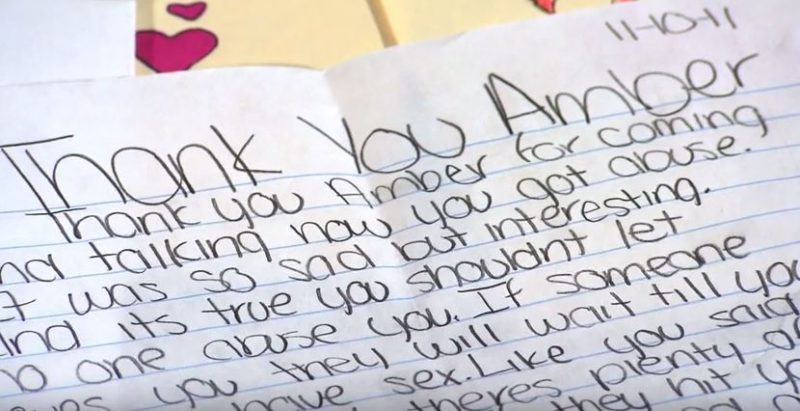 11-10-11
Thank You Amber
Thank you Amber for coming
nd talking how you got abuse.
t was so sad but interesting.
And its true you shouldnt let
o one abuse you. If someone
ves you they will wait till you
have sex. Like you said
theres plenty of
they hit yo